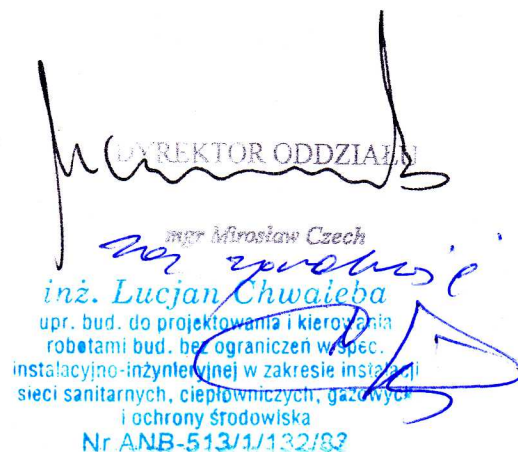 DYREKTOR ODDZIAŁU
mgr Mirosław Czech
za zgodność
inż. Lucjan Chwaleba
upr. bud. do projektowania i kierowania
robotami bud. bez ograniczeń w spec.
instalacyjno-inżynieryjnej w zakresie instalacji
sieci sanitarnych, ciepłowniczych, gazowych
i ochrony środowiska
Nr ANB-513/1/132/83